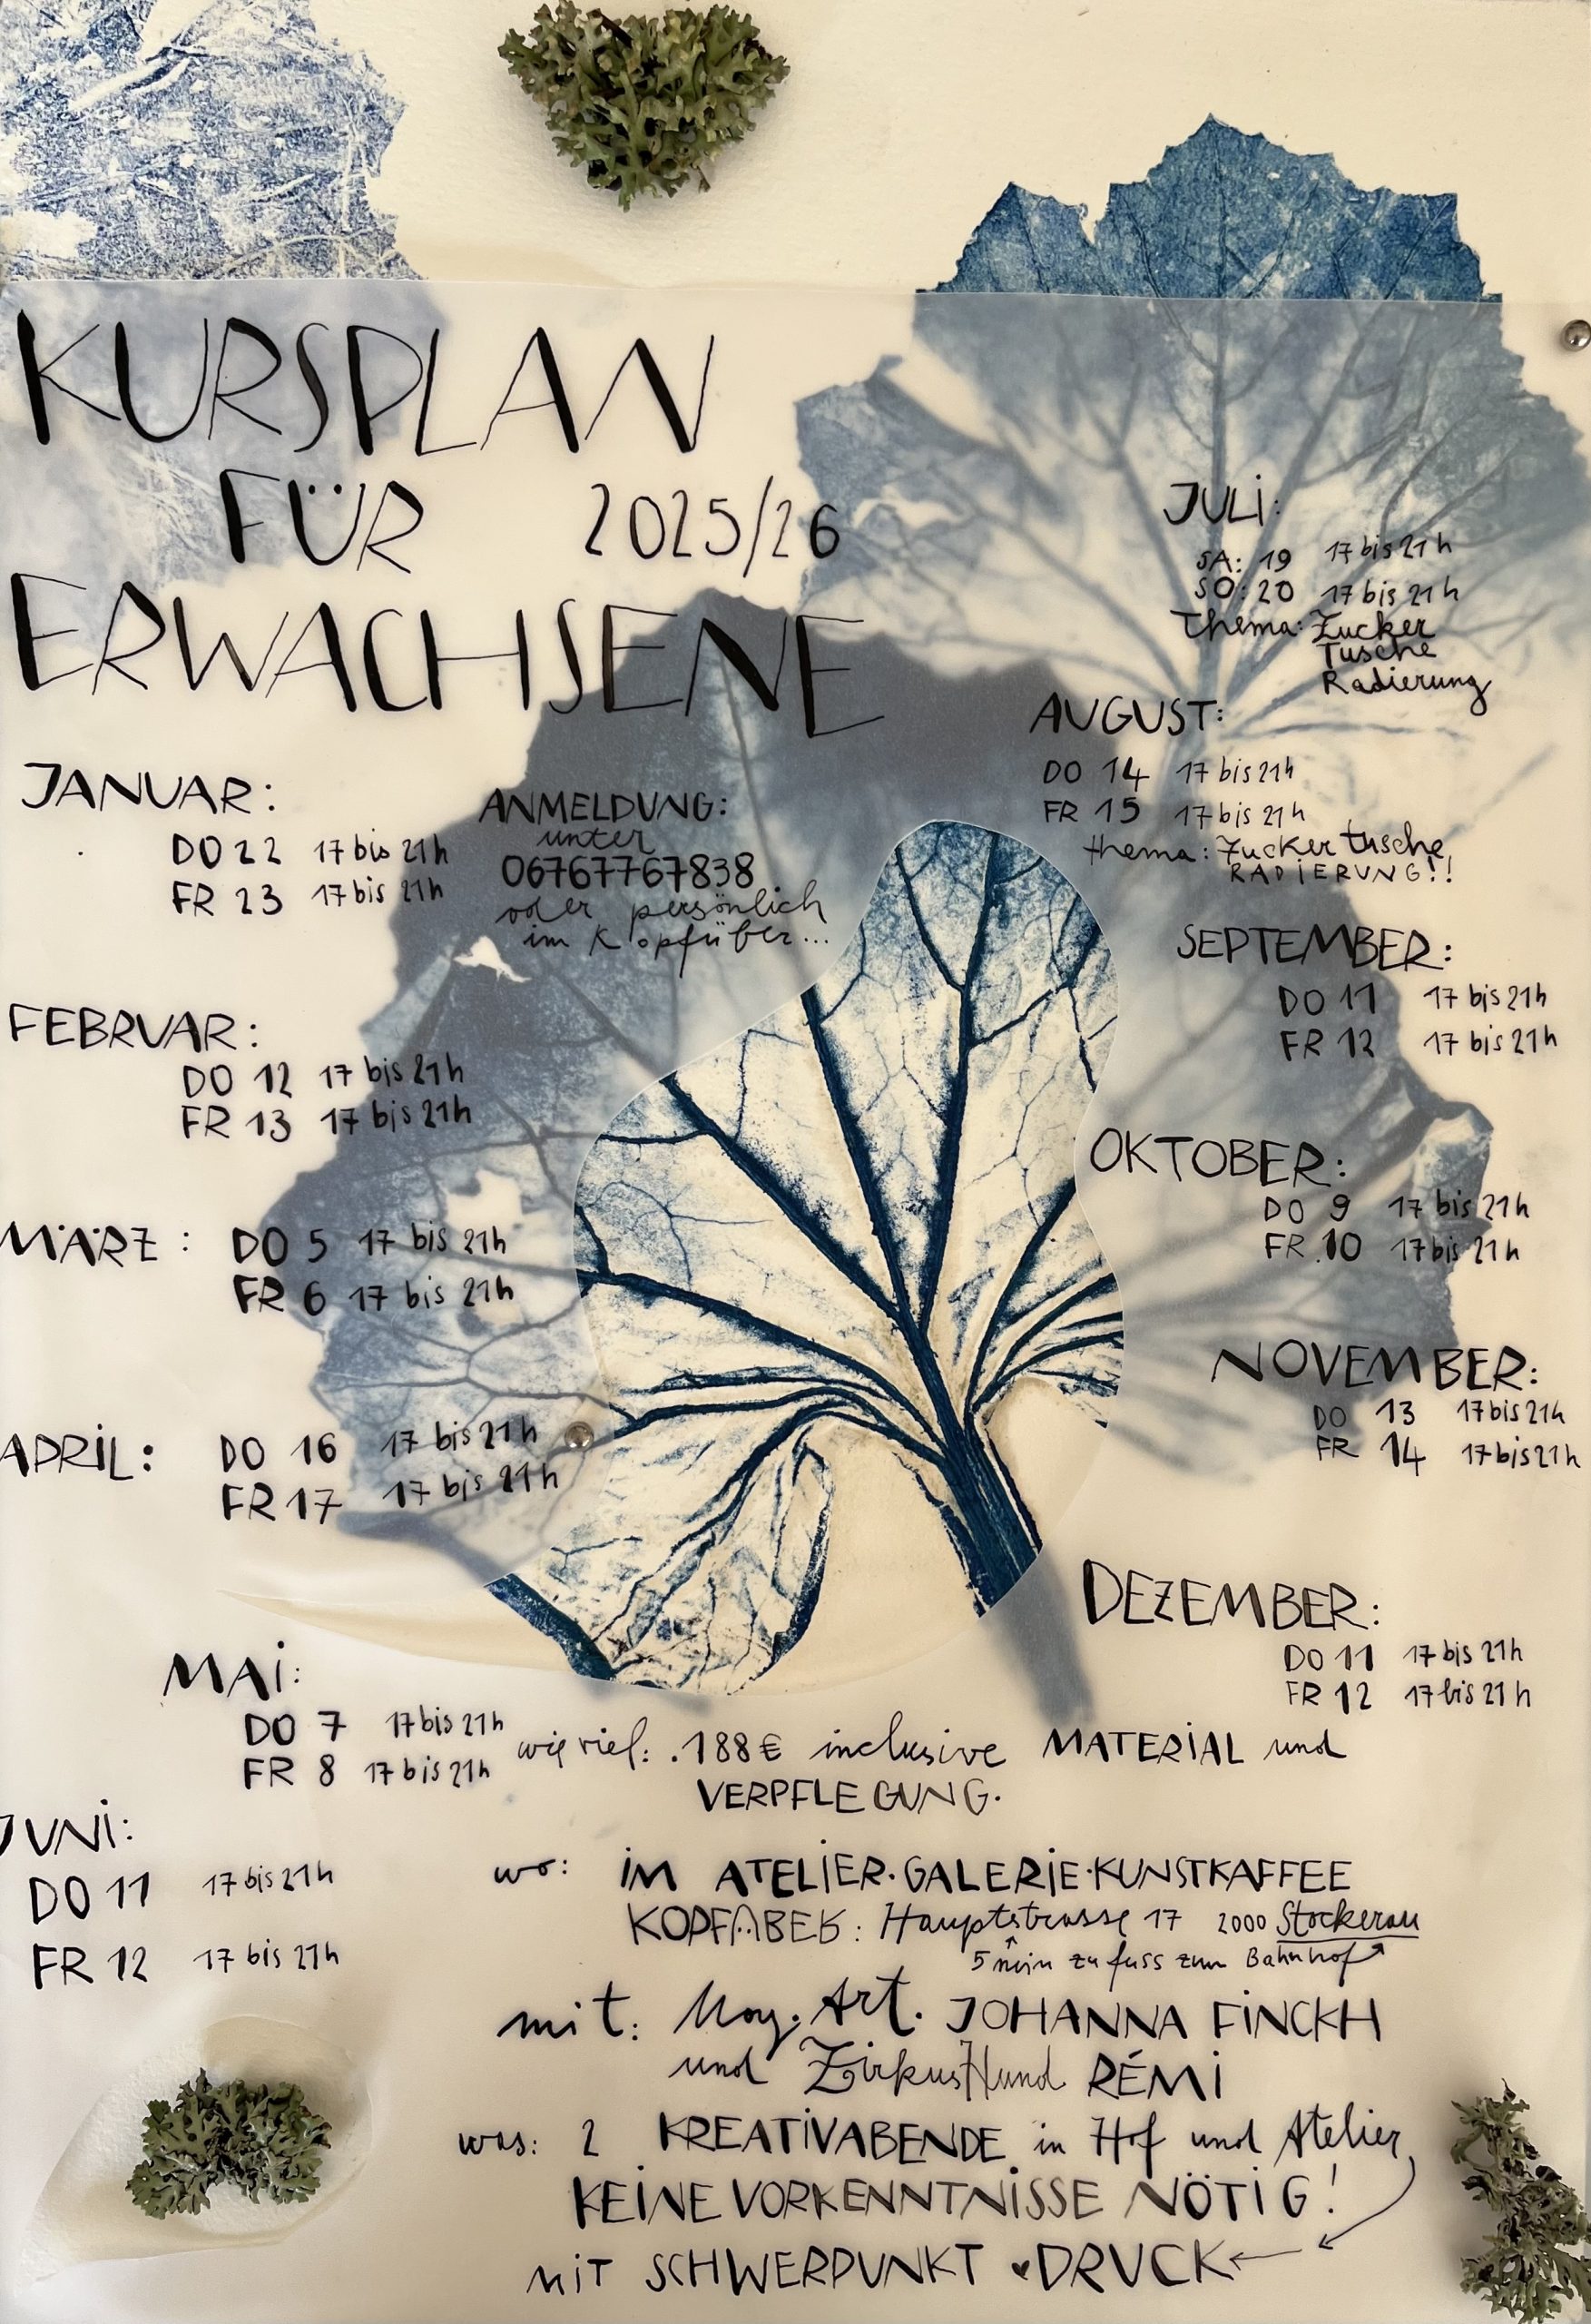 KURSPLAN
FÜR 2025/26
ERWACHSENE
JANUAR:
DO 22 17 bis 21h
FR 23 17 bis 21h
FEBRUAR:
DO 12 17 bis 21h
FR 13 17 bis 21h
MÄRZ: DO 5 17 bis 21h
FR 6 17 bis 21h
APRIL: DO 16 17 bis 21h
FR 17 17 bis 21h
MAI:
DO 7 17 bis 21h
FR 8 17 bis 21h
JUNI:
DO 11 17 bis 21h
FR 12 17 bis 21h
ANMELDUNG:
unter
06767767838
oder persönlich
im Kopfüber...
JULI:
SA: 19 17 bis 21h
SO: 20 17 bis 21h
Thema: Zucker
Tusche
Radierung
AUGUST:
DO 14 17 bis 21h
FR 15 17 bis 21h
thema: Zucker tusche,
RADIERUNG!!
SEPTEMBER:
DO 11 17 bis 21h
FR 12 17 bis 21h
OKTOBER:
DO 9 17 bis 21h
FR 10 17 bis 21h
NOVEMBER:
DO 13 17 bis 21h
FR 14 17 bis 21h
DEZEMBER:
DO 11 17 bis 21h
FR 12 17 bis 21h
wie viel: 188€ inclusive MATERIAL und
VERPFLEGUNG.
wo: IM ATELIER·GALERIE·KUNSTKAFFEE
KOPFÜBER: Hauptstrasse 17 2000 Stockerau
5 min zu fuss zum Bahnhof
mit: Mag. Art. JOHANNA FINCKH
und ZirkusHund RÉMI
was: 2 KREATIVABENDE in Hof und Atelier,
KEINE VORKENNTNISSE NÖTIG!
MIT SCHWERPUNKT ♥DRUCK